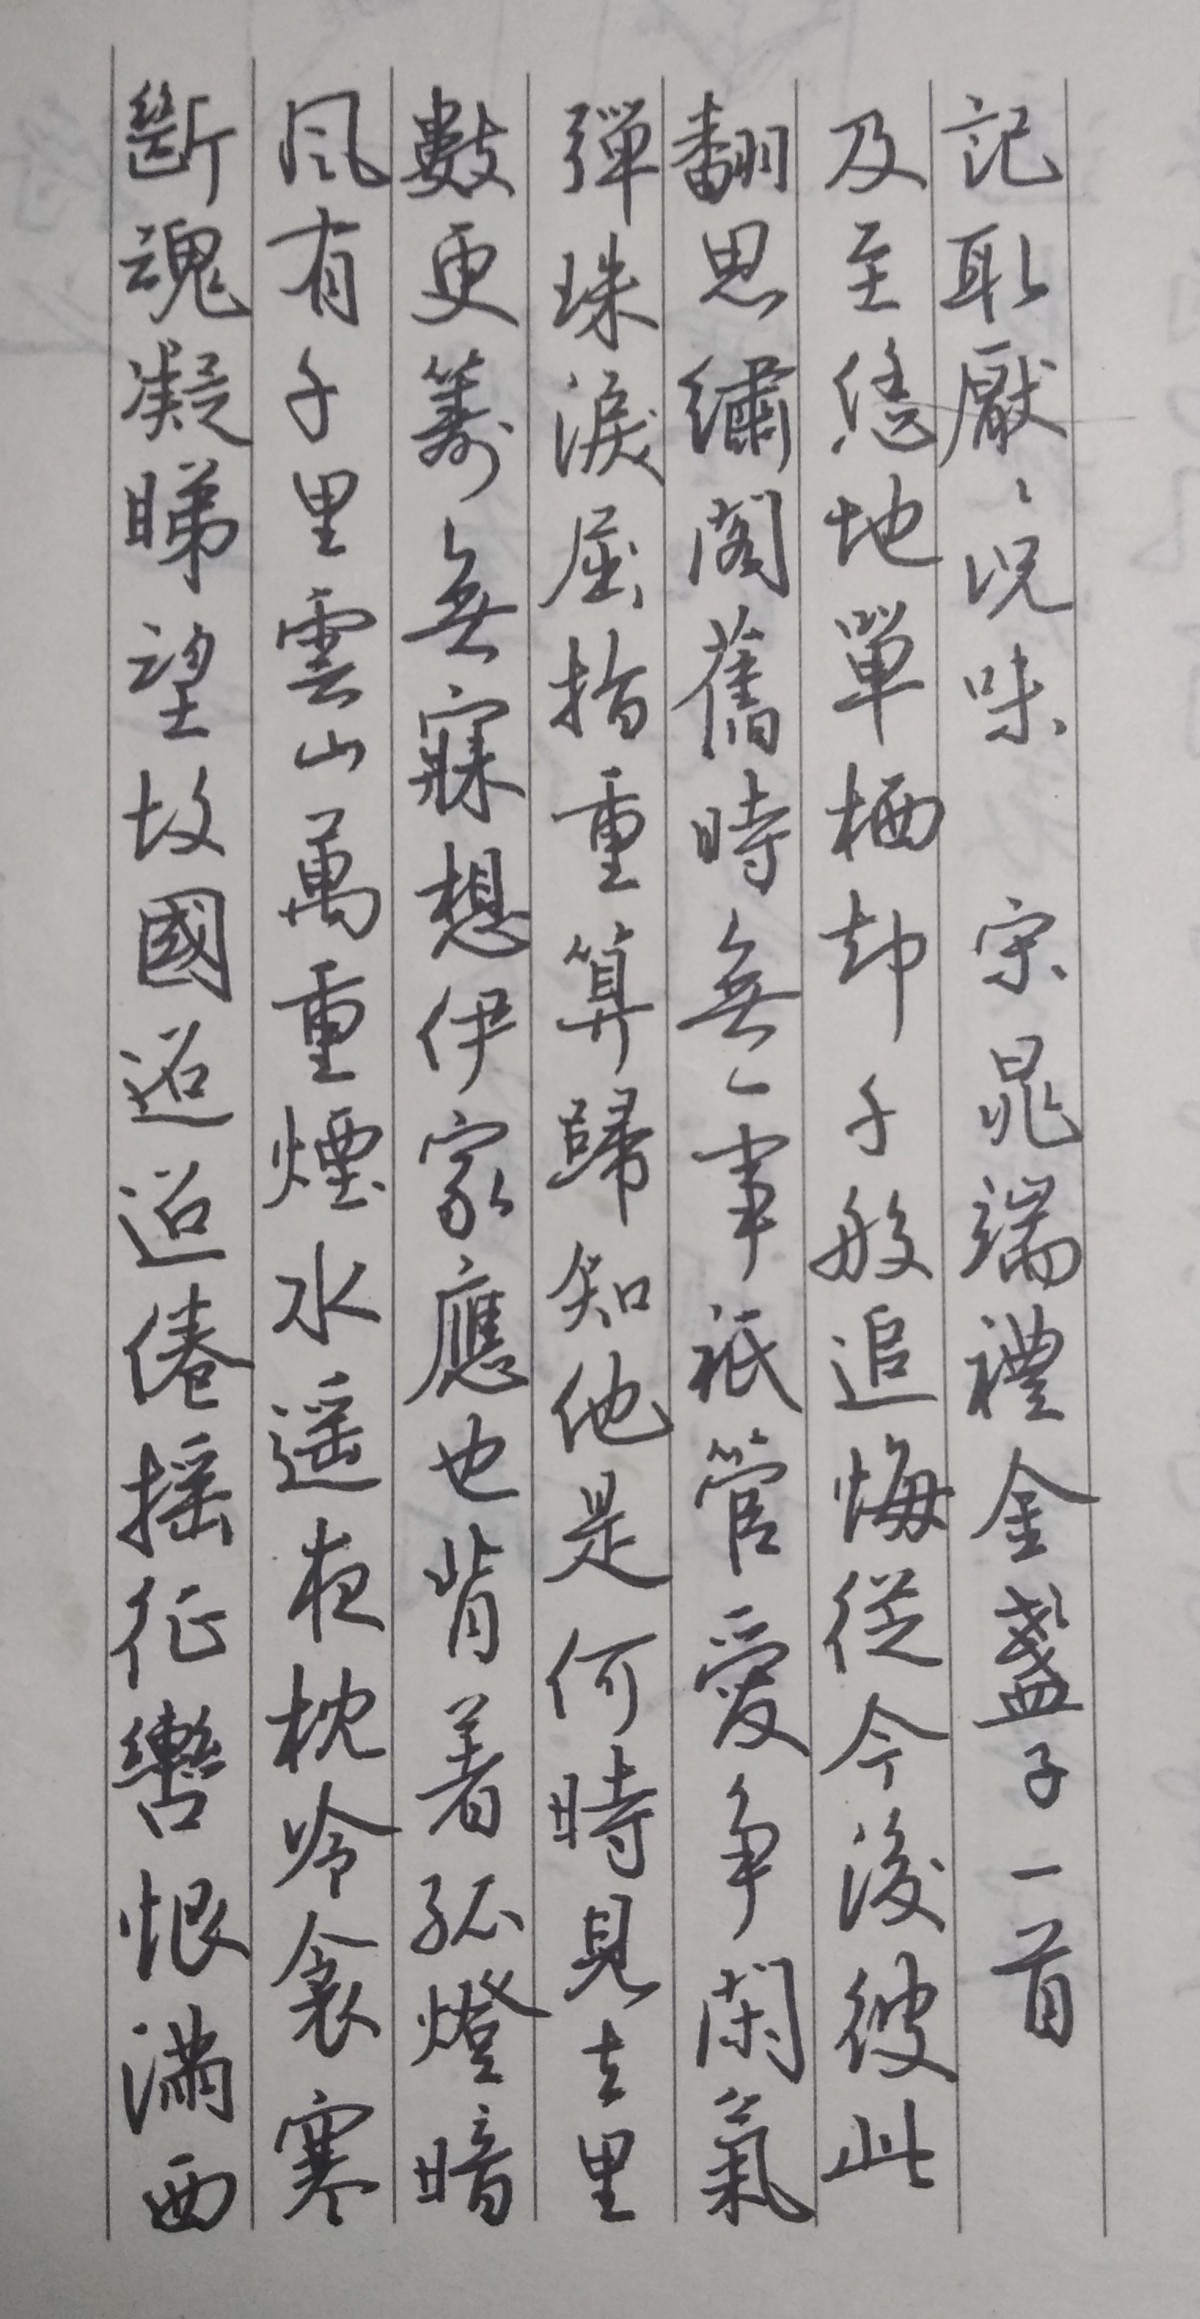 斷魂凝睇望故國迢迢倦摇征轡恨滿西
風有千里雲山萬重煙水遥夜枕冷衾寒
數更籌無寐想伊家應也背着孤燈暗
彈珠淚屈指重算歸知他是何時見去里
翻思繡閣舊時無一事衹管愛爭閑氣
及至恁地單栖却千般追悔從今後彼此
記取厭〻況味 宋晁端禮金盞子一首